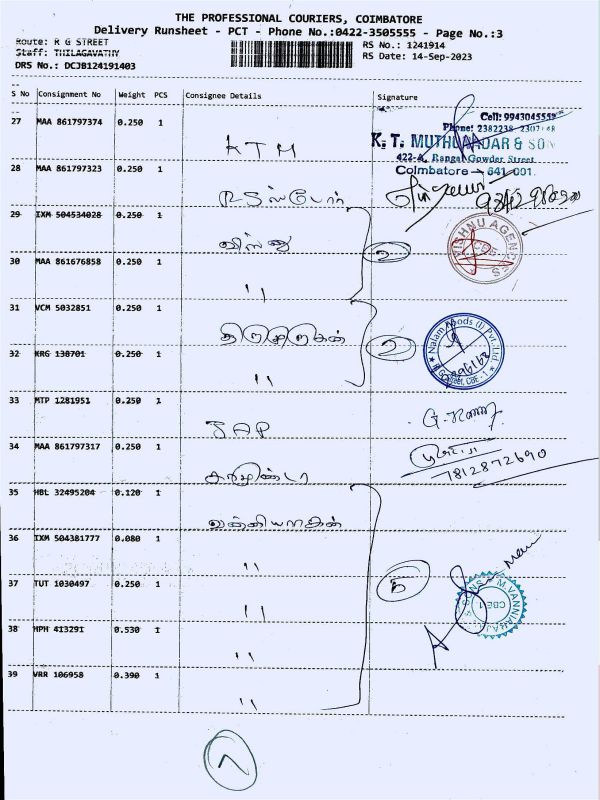 THE PROFESSIONAL COURIERS, COIMBATORE
Delivery Runsheet - PCT - Phone No.:0422-3505555 - Page No.:3
Route: R G STREET
RS No.: 1241914
Staff: THILAGAVATHY
RS Date: 14-Sep-2023
DRS No.: DCJB124191403
S No Consignment No Weight PCS Consignee Details Signature
27 MAA 861797374 0.250 1 KTM
Cell: 9943045552
K. T. MUTHU & SON
422-A, Rangai Gowder Street
Coimbatore - 641 001.
28 MAA 861797323 0.250 1
29 IXM 504534028 0.250 1 விஸ்னு
VISHNU AGENCIES
30 MAA 861676858 0.250 1 "
31 VCM 5032851 0.250 1 திருமுருகன்
Nalam Foods (I) Pvt. Ltd.
32 KRG 138701 0.250 1 "
33 MTP 1281951 0.250 1 JAP
34 MAA 861797317 0.250 1
7812872690
35 HBL 32495204 0.120 1 வன்னியராஜன்
36 IXM 504381777 0.080 1 "
5
37 TUT 1030497 0.250 1 "
CBE-1
38 HPH 413291 0.530 1 "
39 VRR 106958 0.390 1 "
7